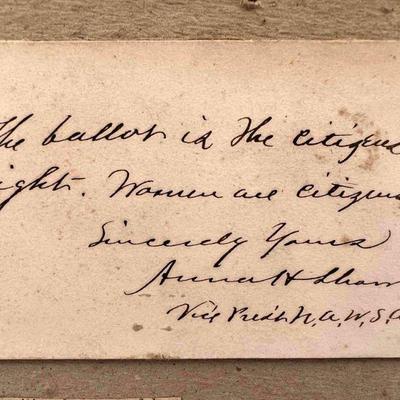 The ballot is the citizens
right. Women are citizens
Sincerely Yours
Anna H Shaw
Vice Pres't N.A.W.S.A